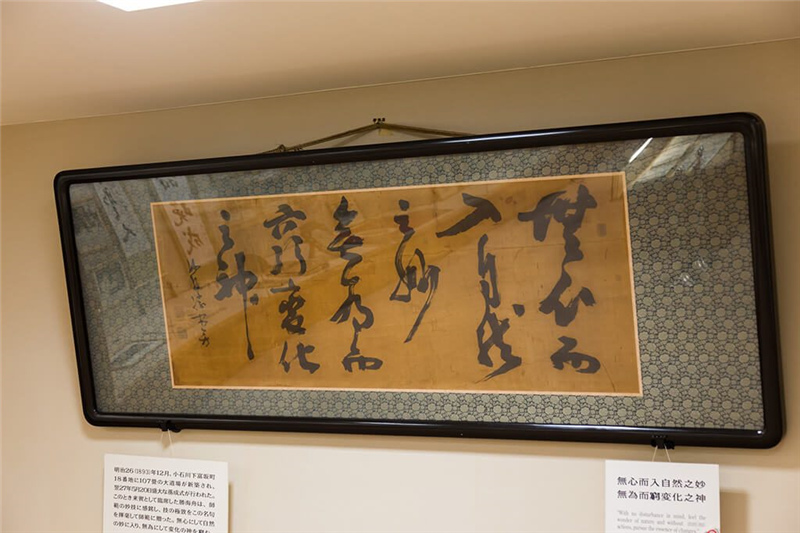 無心而
入自然
之妙
無為而
窮變化
之神
明治26(1893)年12月、小石川下富坂町
18番地に107畳の大道場が新築され、
翌27年5月20日盛大な落成式が行われた。
このとき来賓として臨席した勝海舟は、師
範の妙技に感銘し、技の極致をこの名句
を揮毫して師範に贈った。無心にして自然
の妙に入り、無為にして変化の神を窮む
無心而入自然之妙
無為而窮變化之神
"With no disturbance in mind, feel the
wonder of nature and without
actions, pursue the essence of changes."